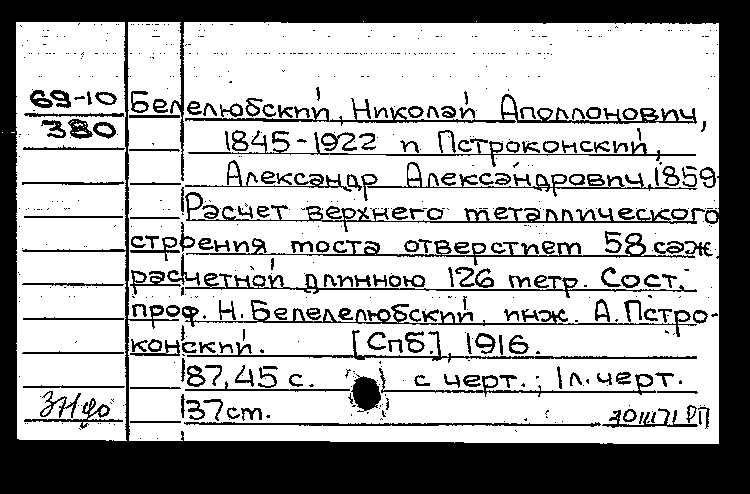 69-10
380
Белелюбский, Николай Аполлонович,
1845-1922 и Пстроконский,
Александр Александрович, 1859-
Расчет верхнего металлического
строения моста отверстием 58 саж.
расчетной длинною 126 метр. Сост.
проф. Н. Белелелюбский, инж. А. Пстро-
конский. [Спб.], 1916.
87,45 с. с черт.; 1 л. черт.
37 см.